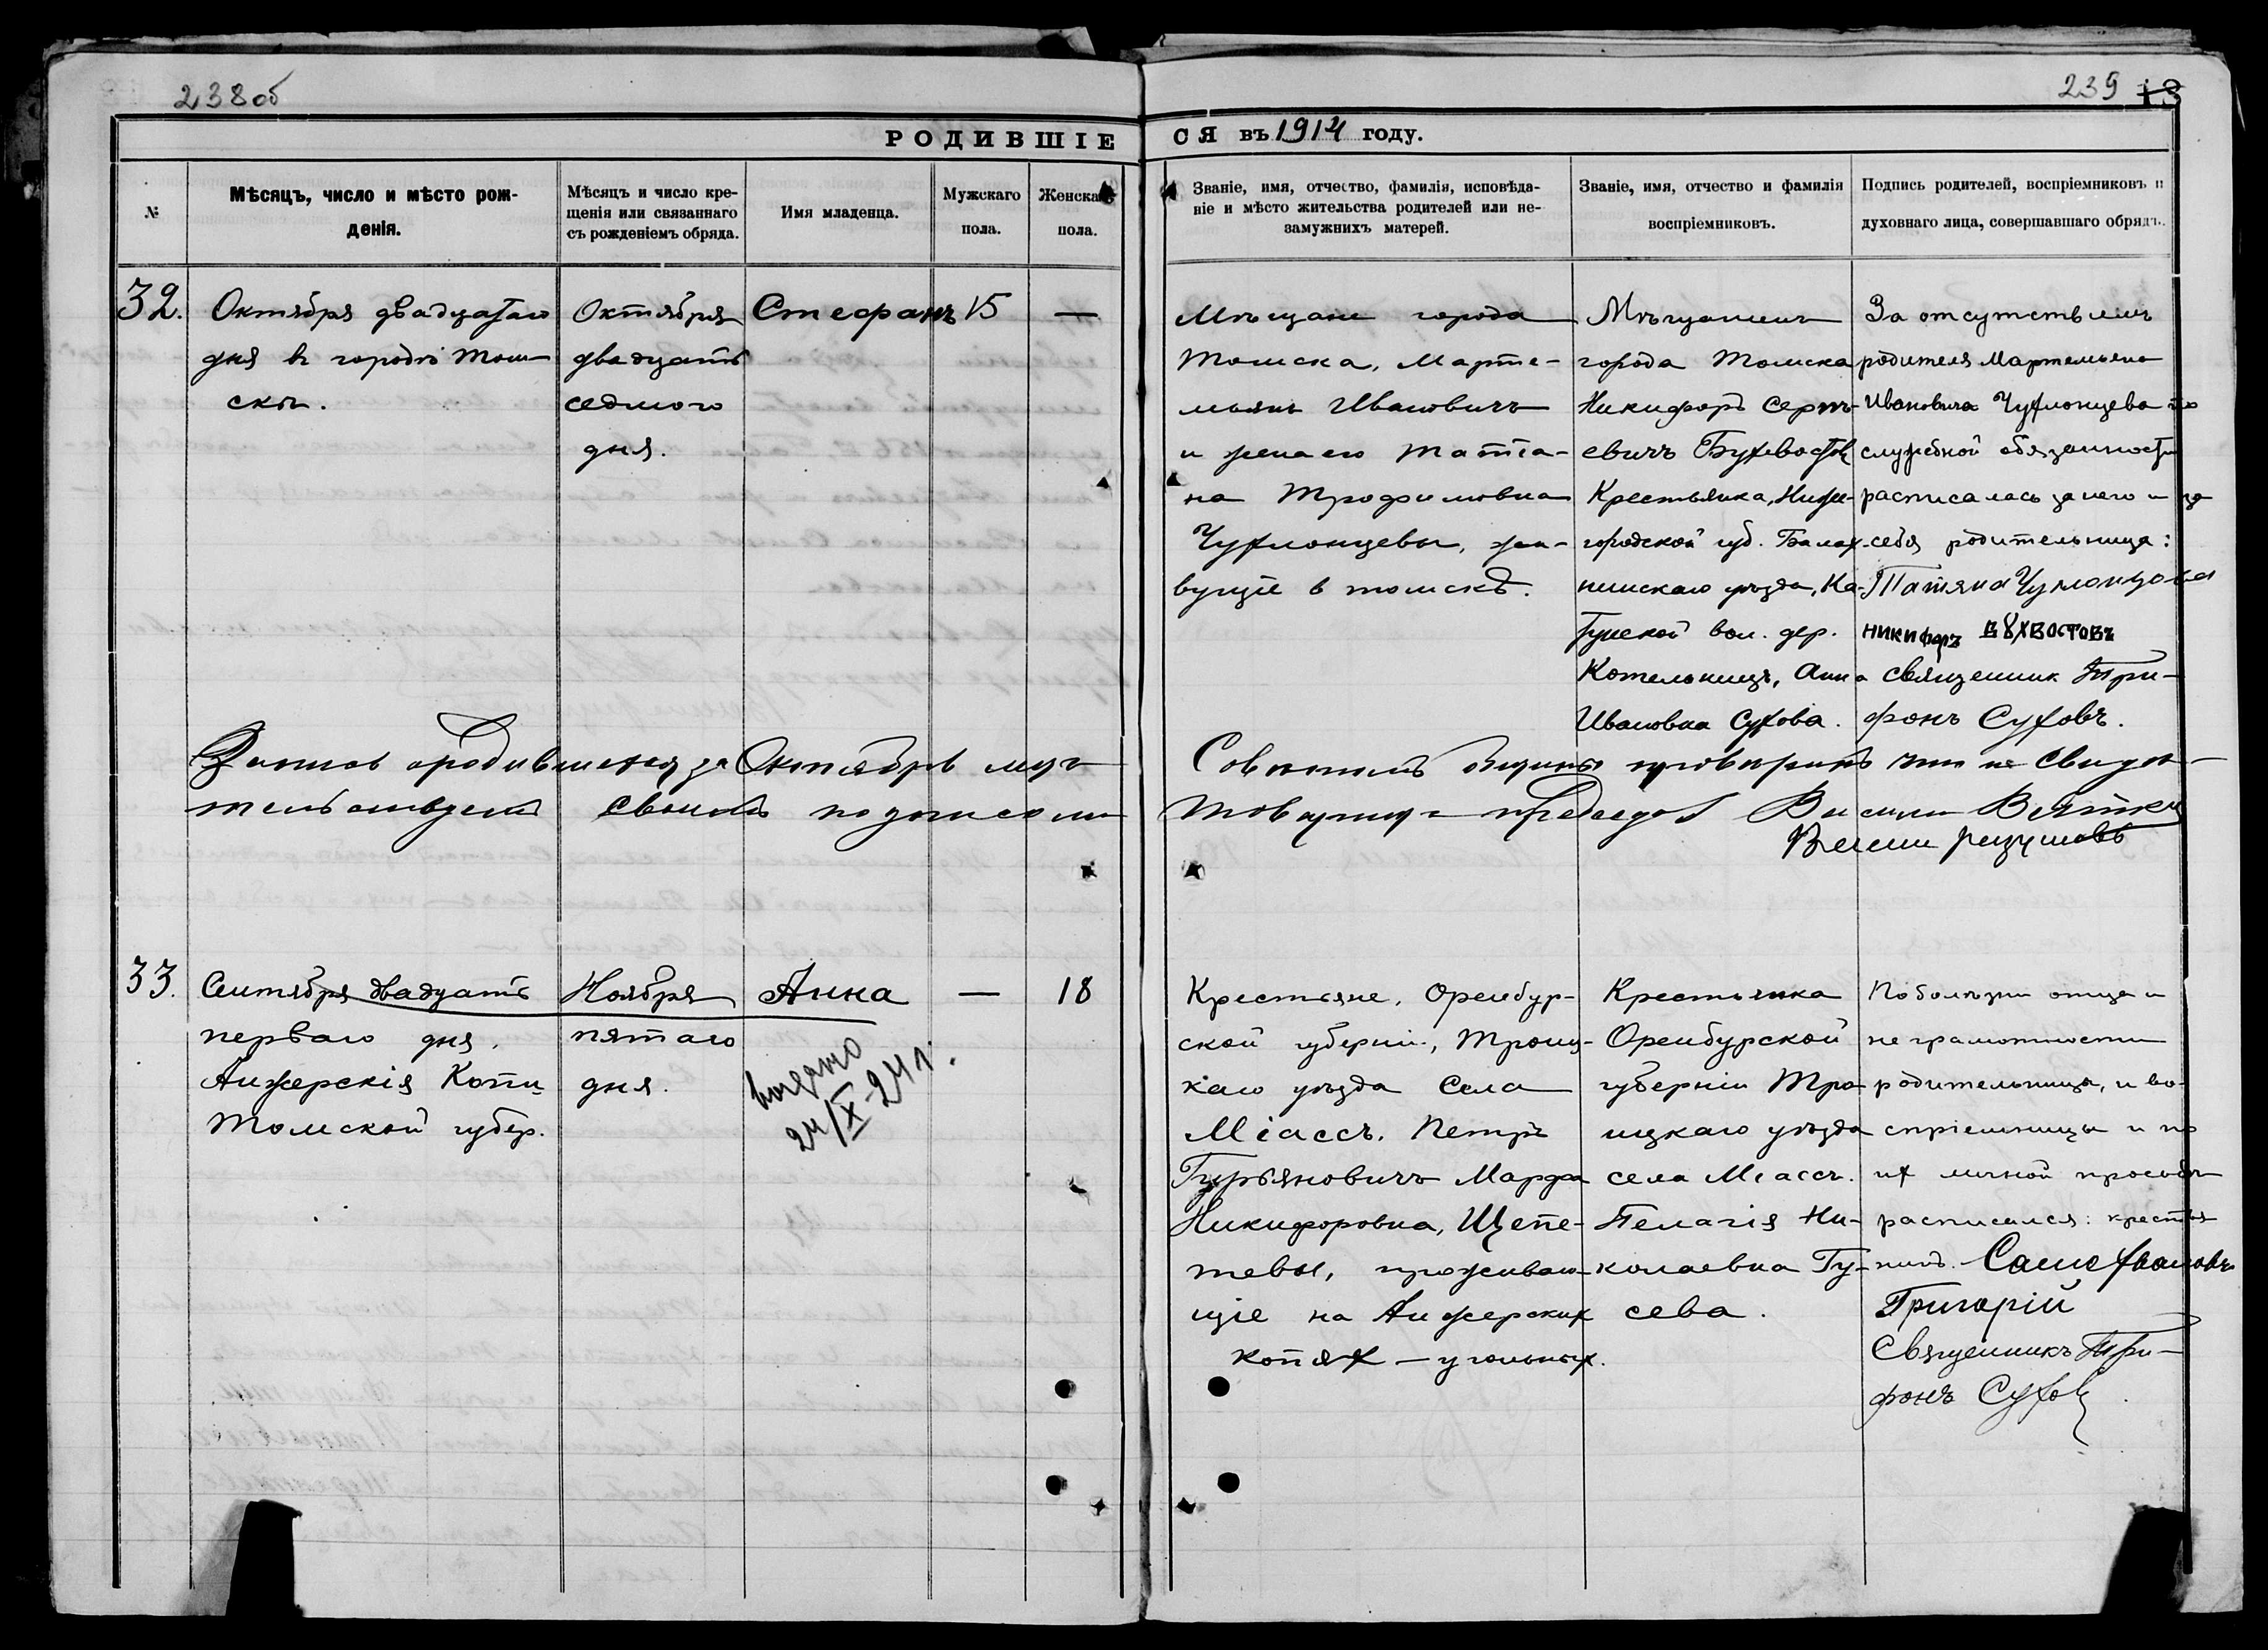 238об
239
13
РОДИВШІЕ
СЯ въ 1914 году.
№
Мѣсяцъ, число и мѣсто рож-
денія.
Мѣсяцъ и число кре-
щенія или связаннаго
съ рожденіемъ обряда.
Имя младенца.
Мужскаго
пола.
Женска
пола.
Званіе, имя, отчество, фамилія, исповѣда-
ніе и мѣсто жительства родителей или не-
замужнихъ матерей.
Званіе, имя, отчество и фамилія
воспріемниковъ.
Подпись родителей, воспріемниковъ и
духовнаго лица, совершавшаго обрядъ.
32.
Октября двадцатаго
дня въ городѣ Том-
скѣ.
Октября
двадцать
седмого
дня.
Стефанъ
15
—
Мѣщане города
Томска, Марте-
мьянъ Ивановичъ
и жена его Татіа-
на Трофимовна
Чухлонцевы, жи-
вущіе в томскѣ.
Мѣщанинъ
города Томска
Никифоръ Сергѣ-
евичъ Бухвостов
Крестьянка, Ниже-
городской губ. Балах-
нинскаго уѣзда, Ка-
тунской вол. дер.
Котельницъ, Анна
Ивановна Сухова.
За отсутствіемъ
родителя Мартемьяна
Ивановича Чухлонцева по
служебной обязанности
расписалась за него и за
себя родительница:
Татяна Чухлонцова
никифоръ Бухвостовъ
священник Три-
фонъ Суховъ.
Запись о родившихся за Октябрь мѣ
Советомъ общины проверина
своимъ подписом
Товарищъ председ
33.
Сентября двадцать
перваго дня.
Анжерскія Копи
Томской губер.
Ноября
пятаго
дня.
Анна
—
18
выдано
24/IX-24 г.
Крестьяне, Оренбур-
ской губерніи, Троиц-
каго уѣзда Села
Міассъ. Петръ
Гурьяновичъ Марфа
Никифоровна, Щепе-
тевы, проживаю-
щіе на Анжерских
копях — угольных.
Крестьянка
Оренбурской
губерніи Тро-
ицкаго уѣзда
села Міассъ.
Пелагія Ни-
колаевна Гу-
сева.
По болѣзни отца и
не грамотности
родительницы, и во-
спріемницы и по
их личной просьбѣ
расписался: крестья
нинъ.
Григорій
Священникъ Три-
фонъ Сухов